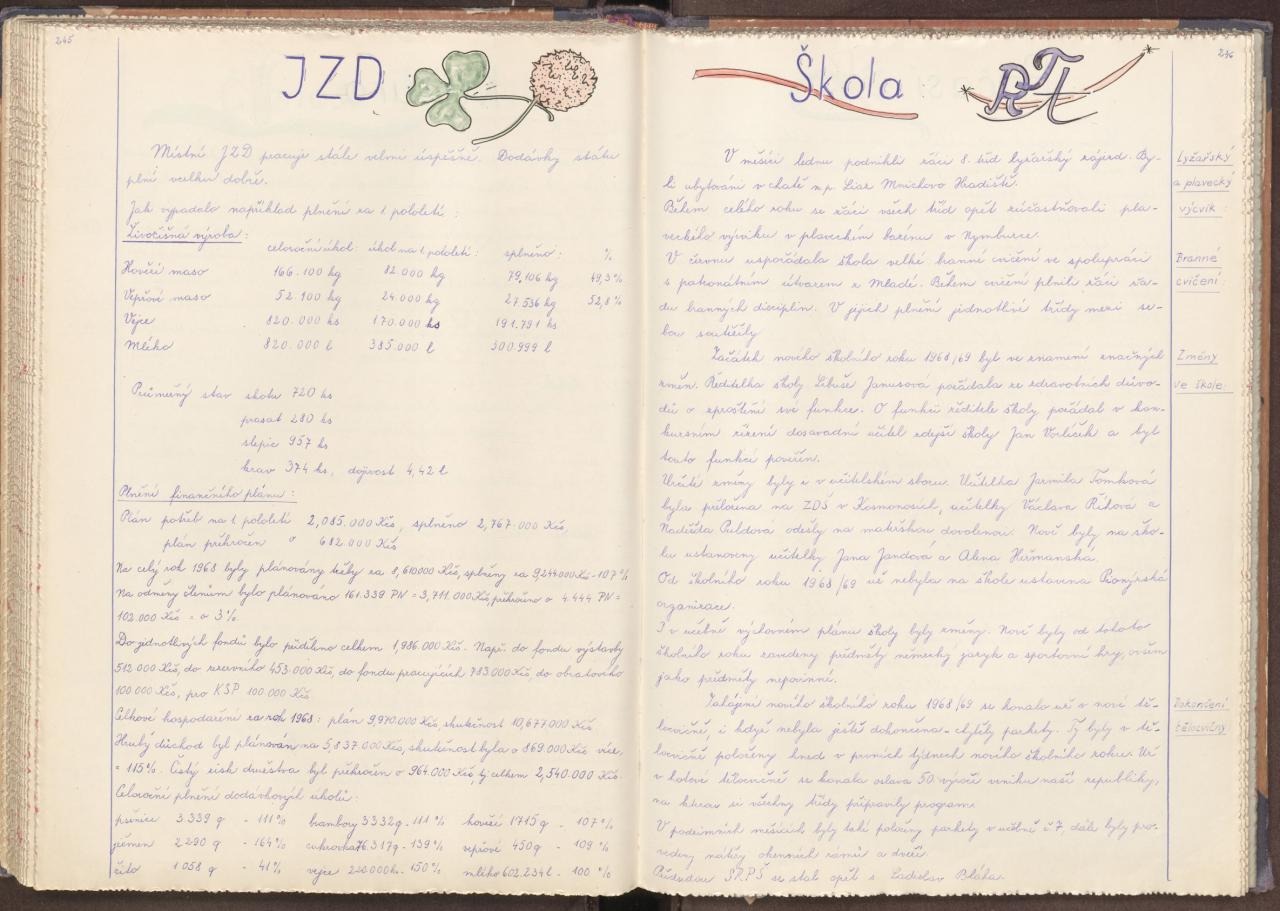 245
JZD
Místní JZD pracuje stále velmi úspěšně. Dodávky státu
plní vcelku dobře.
Jak vypadalo například plnění za 1. pololetí:
Živočišná výroba:
celoroční úkol: úkol na 1. pololetí: splněno: %
Hovězí maso 166.100 kg 82.000 kg 79.106 kg 49,3%
Vepřové maso 52.100 kg 24.000 kg 27.536 kg 52,8%
Vejce 820.000 ks 170.000 ks 191.791 ks
Mléko 820.000 l 385.000 l 300.999 l
Průměrný stav skotu 720 ks
prasat 280 ks
slepic 957 ks
krav 374 ks, dojivost 4,42 l
Plnění finančního plánu:
Plán potřeb na 1. pololetí 2,085.000 Kčs, splněno 2,767.000 Kčs,
plán překročen o 682.000 Kčs
Na celý rok 1968 byly plánovány tržby za 8,610.000 Kčs, splněny za 9,244.000 Kčs - 107 %
Na odměny členům bylo plánováno 161.339 PN = 3,711.000 Kčs, překročeno o 4.444 PN =
102.000 Kčs = o 3%.
Do jednotlivých fondů bylo přiděleno celkem 1,986.000 Kčs. Např. do fondu výstavby
512.000 Kčs, do rezervního 453.000 Kčs, do fondu pracujících 783.000 Kčs, do obratového
100.000 Kčs, pro KSP 100.000 Kčs
Celkové hospodaření za rok 1968: plán 9,970.000 Kčs, skutečnost 10,677.000 Kčs
Hrubý důchod byl plánován na 5,837.000 Kčs, skutečnost byla o 869.000 Kčs více,
= 115%. Čistý zisk družstva byl překročen o 964.000 Kčs, tj. celkem 2,540.000 Kčs.
Celoroční plnění dodávkových úkolů:
pšenice 3.339 q - 111% brambory 3332q - 111% hovězí 1715q - 107%
ječmen 2290 q - 164% cukrovka 76.317q - 139% vepřové 450q - 109%
žito 1058 q - 41% vejce 220.000k. - 150% mléko 602.234l - 100 %
246
Škola
V měsíci lednu podnikli žáci 8. tříd lyžařský zájezd. By-
li ubytováni v chatě n.p. Liaz Mnichovo Hradiště.
Během celého roku se žáci všech tříd opět zúčastňovali pla-
veckého výcviku v plaveckém bazénu v Nymburce.
V červnu uspořádala škola velké branné cvičení ve spolupráci
s patronátním útvarem z Mladé. Během cvičení plnili žáci řa-
du branných disciplin. V jejich plnění jednotlivé třídy mezi se-
bou soutěžily
Začátek nového školního roku 1968/69 byl ve znamení značných
změn. Ředitelka školy Libuše Janusová požádala ze zdravotních důvo-
dů o zproštění své funkce. O funkci ředitele školy požádal v kon-
kursním řízení dosavadní učitel zdejší školy Jan Vorlíček a byl
touto funkcí pověřen.
Určité změny byly i v učitelském sboru. Učitelka Jarmila Tomková
byla přeložena na ZDŠ v Kosmonosích, učitelky Václava Říhová a
Naděžda Puldová odešly na mateřskou dovolenou. Nově byly na ško-
lu ustanoveny učitelky Jana Jandová a Alena Heřmanská.
Od školního roku 1968/69 už nebyla na škole ustavena Pionýrská
organizace.
I v učebně výchovném plánu školy byly změny. Nově byly od tohoto
školního roku zavedeny předměty německý jazyk a sportovní hry, ovšem
jako předměty nepovinné.
Zahájení nového školního roku 1968/69 se konalo už v nové tě-
locvičně, i když nebyla ještě dokončena - chyběly parkety. Ty byly v tě-
locvičně položeny hned v prvních týdnech nového školního roku. Už
v hotové tělocvičně se konala oslava 50. výročí vzniku naší republiky,
na kterou si všechny třídy připravily program.
V podzimních měsících byly také položeny parkety v učebně č. 7, dále byly pro-
vedeny nátěry okenních rámů a dveří.
Předsedou SRPŠ se stal opět s. Ladislav Bláha.
Lyžařský
a plavecký
výcvik:
Branné
cvičení:
Změny
ve škole:
Dokončení
tělocvičny